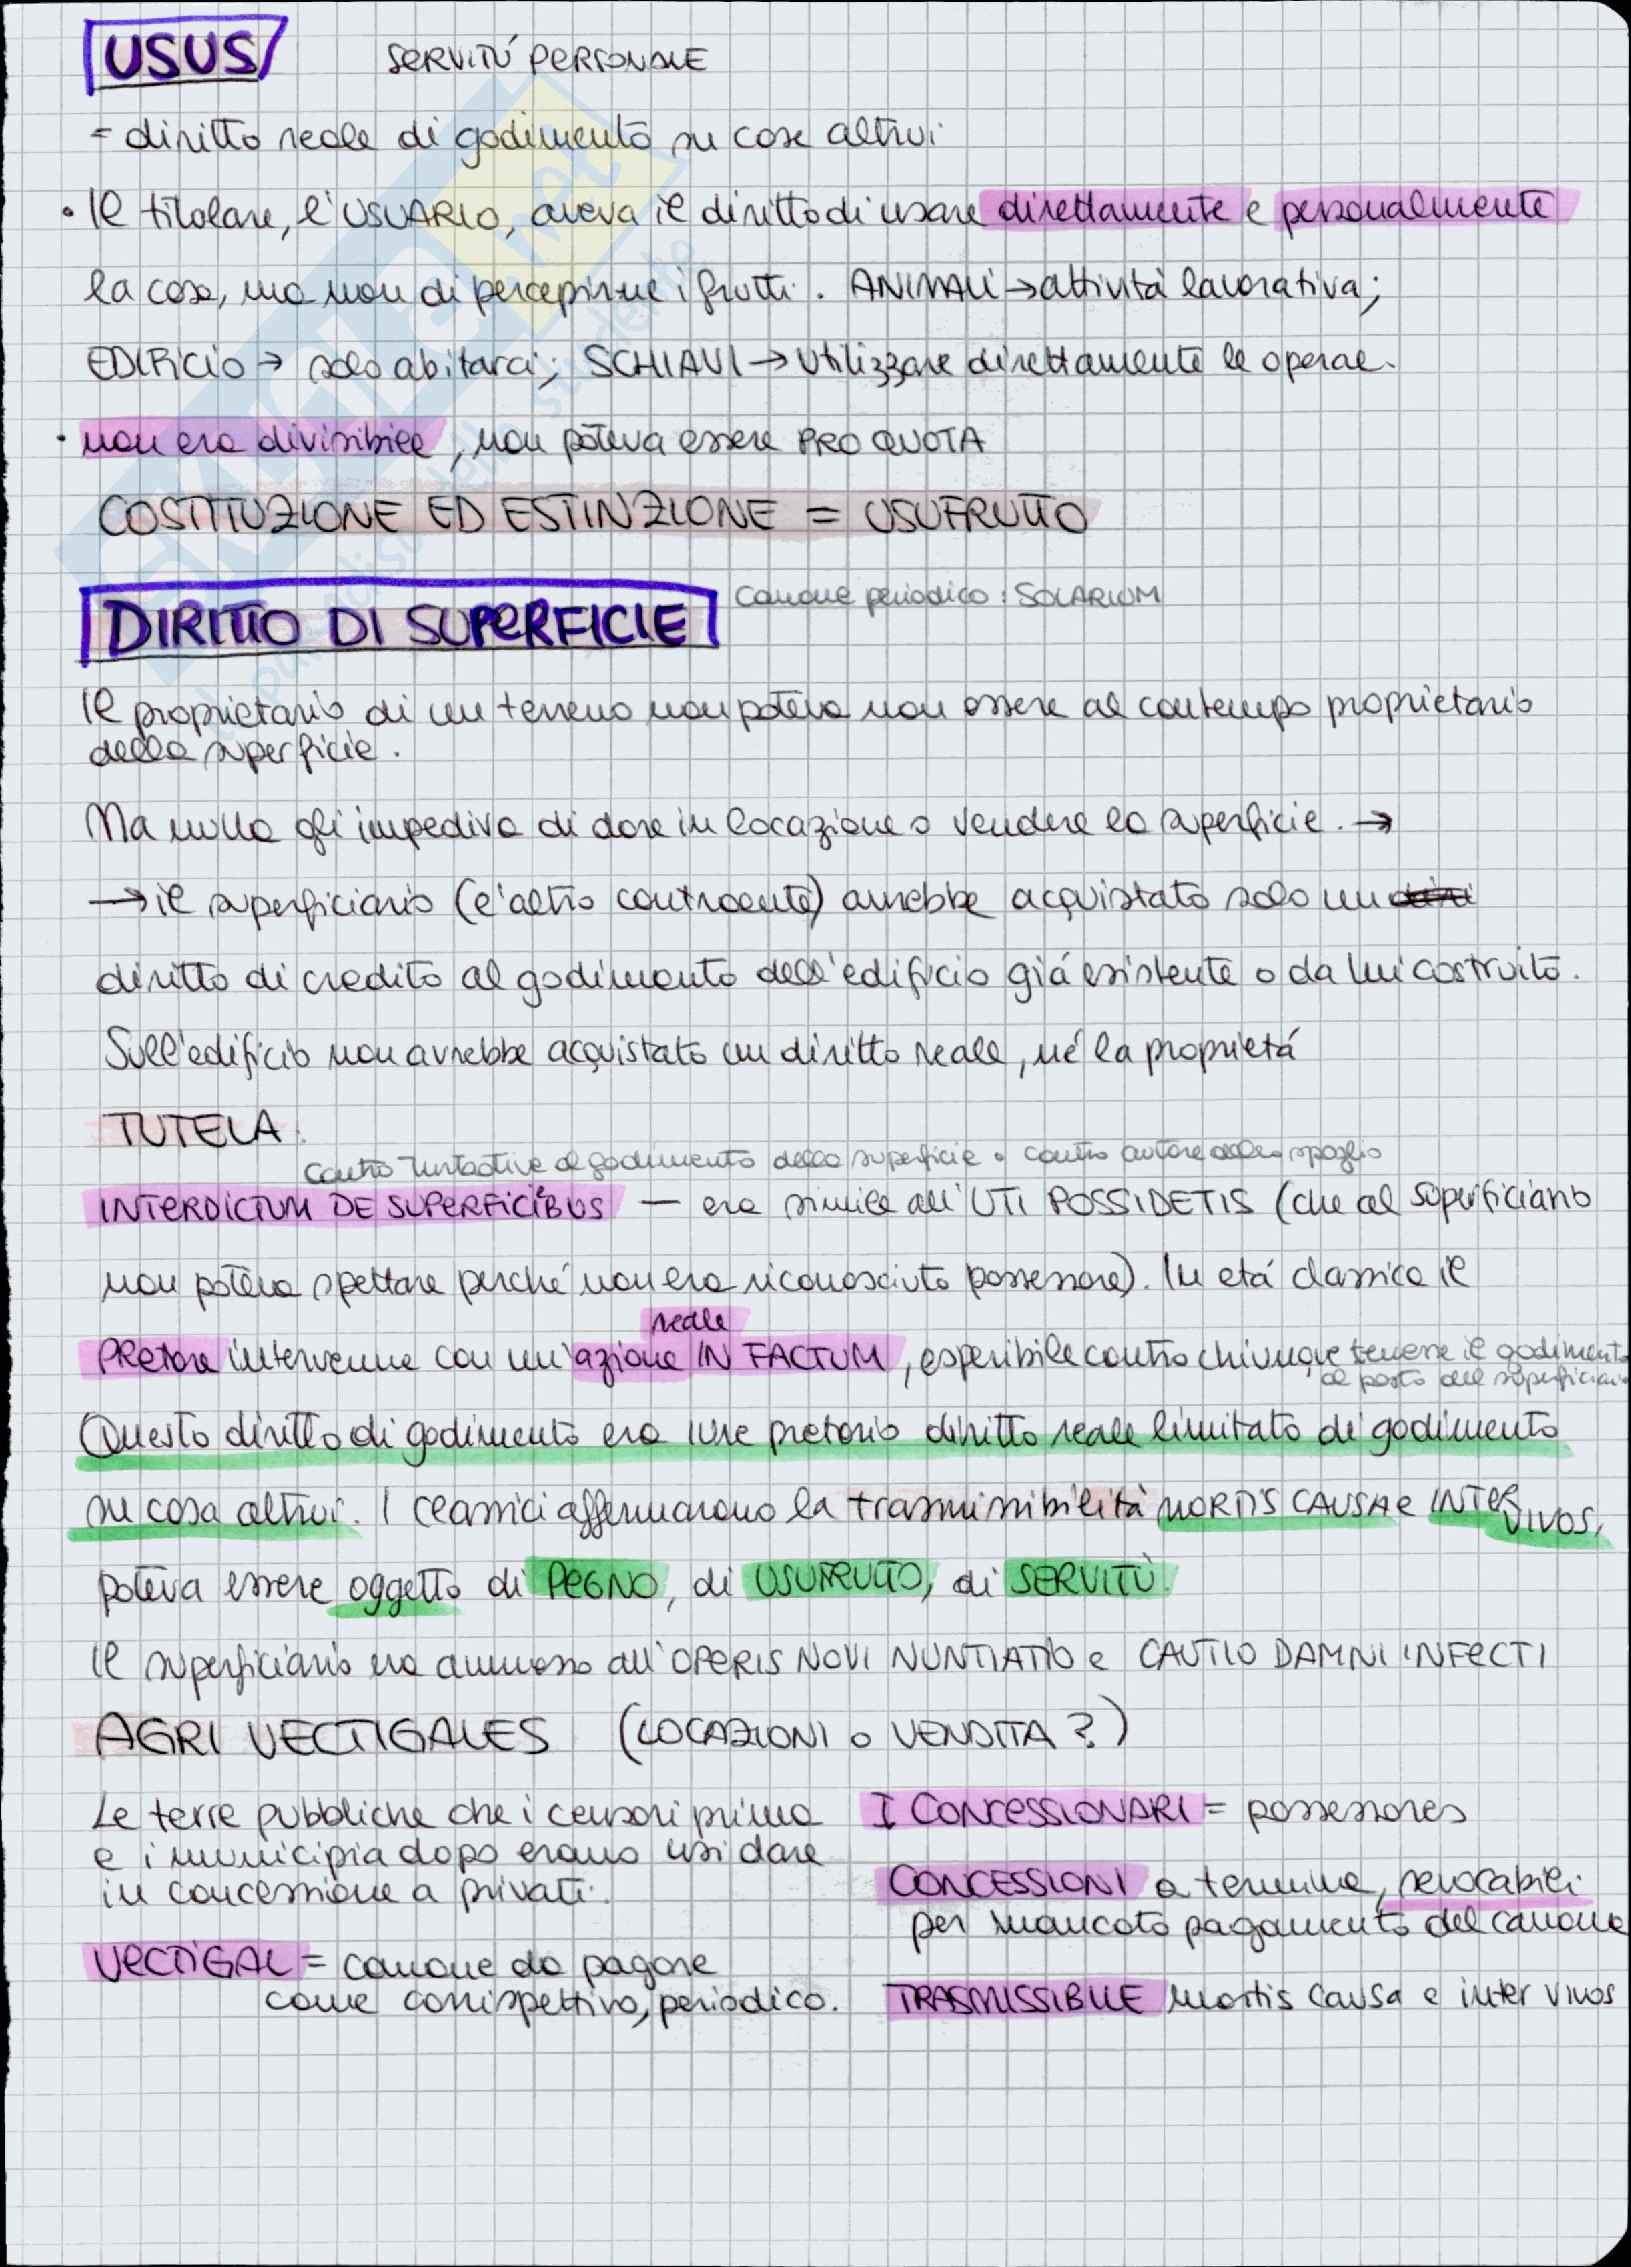 USUS servitú personale
= diritto reale di godimento su cose altrui
• Il titolare, l'USUARIO, aveva il diritto di usare direttamente e personalmente
la cosa, ma non di percepirne i frutti. ANIMALI → attività lavorativa;
EDIFICIO → solo abitarci; SCHIAVI → utilizzare direttamente le operae.
• non era divisibile, non poteva essere PRO QUOTA
COSTITUZIONE ED ESTINZIONE = USUFRUTTO
DIRITTO DI SUPERFICIE canone periodico: SOLARIUM
Il proprietario di un terreno non poteva non essere al contempo proprietario
della superficie.
Ma nulla gli impediva di dare in locazione o vendere la superficie. →
→ il superficiario (l'altro contraente) avrebbe acquistato solo un
diritto di credito al godimento dell'edificio giá esistente o da lui costruito.
Sull'edificio non avrebbe acquistato un diritto reale, né la proprietá
TUTELA:
contro turbative al godimento della superficie o contro autore dello spoglio
INTERDICTUM DE SUPERFICIEBUS — era simile all'UTI POSSIDETIS (che al superficiario
non poteva spettare perché non era riconosciuto possessore). In etá classica il
reale
PRETORE intervenne con un'azione IN FACTUM, esperibile contro chiunque tenesse il godimento
al posto del superficiario
Questo diritto di godimento era iure pretorio diritto reale limitato di godimento
su cosa altrui. I classici affermarono la trasmissibilità MORTIS CAUSA e INTER
VIVOS,
poteva essere oggetto di PEGNO, di USUFRUTTO, di SERVITÙ.
Il superficiario era ammesso all'OPERIS NOVI NUNTIATIO e CAUTIO DAMNI INFECTI
AGRI VECTIGALES (LOCAZIONI o VENDITA?)
Le terre pubbliche che i censori prima
e i municipia dopo erano usi dare
in concessione a privati.
VECTIGAL = canone da pagare
come corrispettivo, periodico.
I CONCESSIONARI = possessores
CONCESSIONI a termine, revocabili
per mancato pagamento del canone
TRASMISSIBILE mortis causa e inter vivos